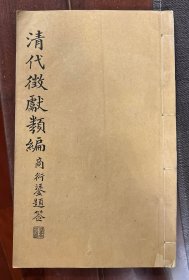 清代徵獻類編
商衍鎏題簽